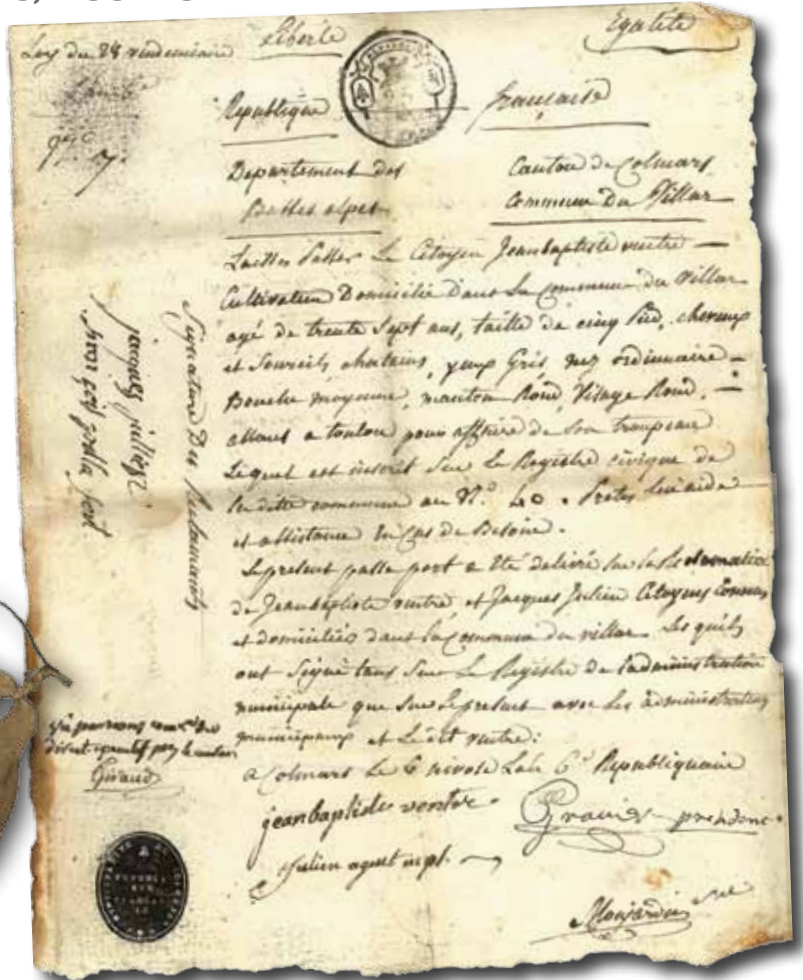 Loy du 28 vendemiaire
Liberté
Egalité
Republique
francaise
Departement des
Basses alpes
Canton de Colmars
Commune Du Villar
Laissés Passer Le Citoyen Jeanbaptiste ventre
Cultivateur Domicilié Dans La Commune du Villar
agé de trente Sept ans, taille de cinq Pied, cheveux
et Sourcils chatains, yeux Gris, nez ordinaire
Bouche moyenne, menton Rond, Visage Rond,
allant a toulon pour affaire de Son troupeau
Lequel est inscrit Sur Le Registre civique de
la ditte commune au N.º 40. Pretes lui aide
et assistance En Cas de Besoin.
Le present passe port a Eté delivré Sur la Reclamation
de Jeanbaptiste ventre, et Jacques Julien Citoyens Connus
et domiciliés dans la Commune du villar. Les quels
ont Signé tant Sur Le Registre de l'administration
municipale que Sur Le present avec Les administrateurs
municipaux et Le dit ventre:
a Colmars Le 6 nivose L'an 6e Republiquaine
jeanbaptiste ventre
president
Julien agent mpl.
Signature Des Reclamants
jacques jullien
Giraud